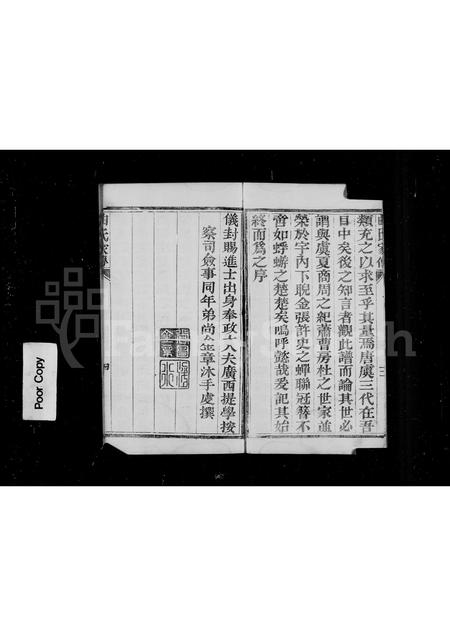 類充之以求至乎其量焉唐虞三代在吾
目中矣後之知言者觀此譜而論其世必
謂與虞夏商周之紀蕭曹房杜之世家並
榮於宇內下睨金張許史之蟬聯冠簪不
啻如蜉蝣之楚楚矣嗚呼懿哉爰記其始
終而為之序
儀封賜進士出身奉政大夫廣西提學按
察司僉事同年弟尚金章沐手處撰
氏家
四
Poor Copy
FamilySearch